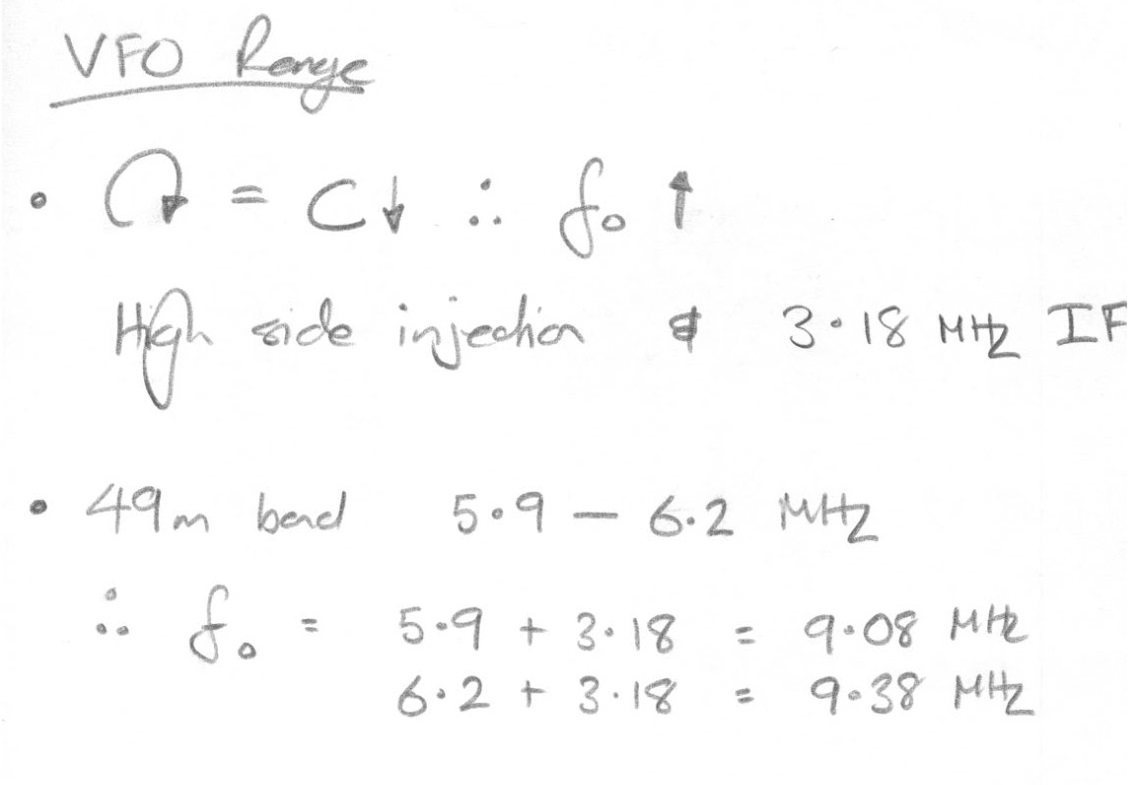 VFO Range
• ↷ = C↓ ∴ fo ↑
High side injection & 3.18 MHz IF
• 49m band 5.9 – 6.2 MHz
∴ fo = 5.9 + 3.18 = 9.08 MHz
6.2 + 3.18 = 9.38 MHz